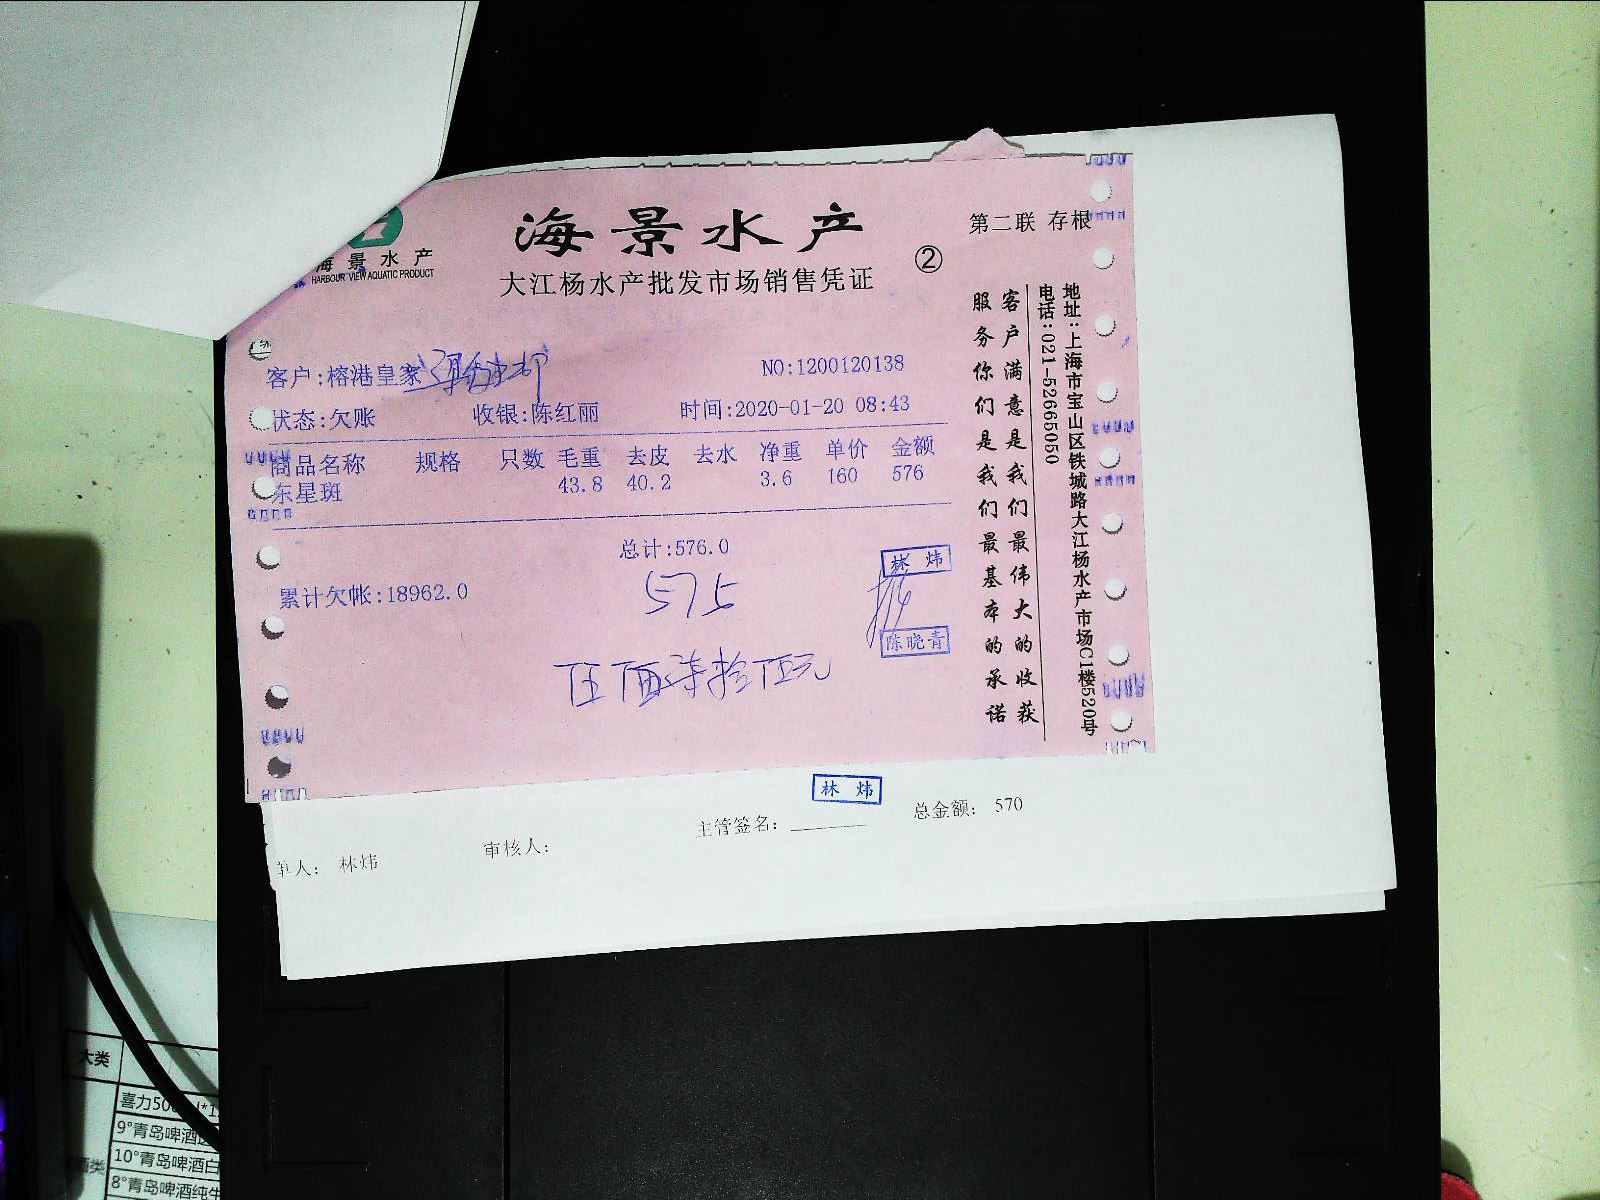 海景水产
HARBOUR VIEW AQUATIC PRODUCT
海景水产
大江杨水产批发市场销售凭证
②
第二联 存根
客户:榕港皇家
NO:1200120138
状态:欠账 收银:陈红丽 时间:2020-01-20 08:43
商品名称 规格 只数 毛重 去皮 去水 净重 单价 金额
东星斑 43.8 40.2 3.6 160 576
总计:576.0
累计欠帐:18962.0
575
伍佰柒拾伍元
林炜
陈晓青
客户满意是我们最伟大的收获
服务你们是我们最基本的承诺
地址:上海市宝山区铁城路大江杨水产市场C1楼520号
电话:021-52665050
林炜
单人: 林炜 审核人: 主管签名: 总金额: 570
大类
喜力500
9°青岛啤酒
10°青岛啤酒白
酒类
8°青岛啤酒纯生